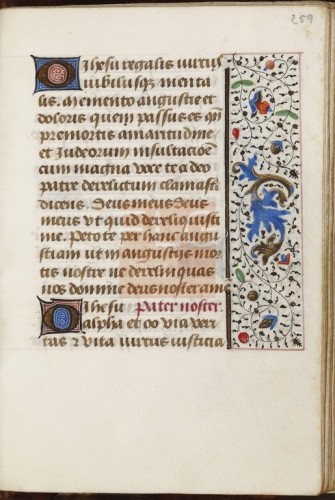 259
O Ihesu regalis virtus
iubilusqꝫ menta
lis. Memento angustie et
doloris quem passus es qn̄
pre mortis amaritudine
et Iudeorum insultacioē
cum magna voce te a deo
patre derelictum clamasti
dicens. Deus meus deus
meus vt quid dereliquisti
me. Peto te per hanc angu
stiam vt in angustijs mor
tis nostre ne derelinquas
nos domine deus noster amē
O Ihesu Pater noster.
alpha et oo via veri
tas ⁊ vita virtus iusticia